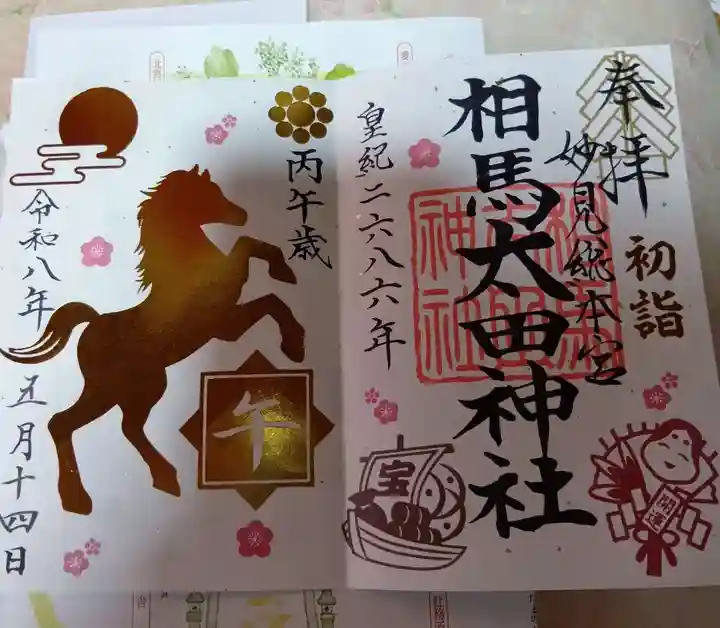 奉拝
初詣
妙見総本宮
相馬太田神社
皇紀二六八六年
宝
丙午歳
午
令和八年
五月十四日